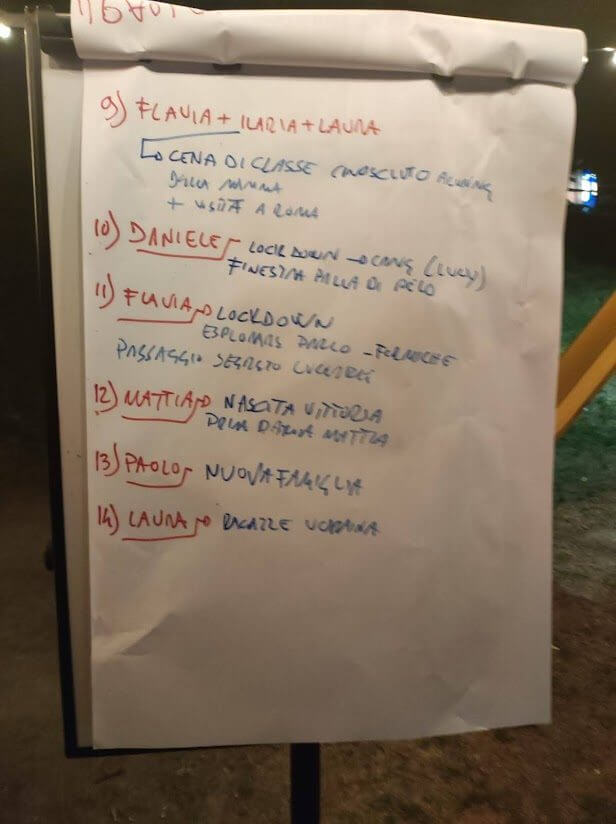 9) FLAVIA + ILARIA + LAURA
CENA DI CLASSE CONOSCIUTO
DALLA MAMMA
+ VISITA A ROMA
10) DANIELE LOCKDOWN → CANE (LUCY)
FINESTRA PALLA DI PELO
11) FLAVIA → LOCKDOWN
ESPLORARE PARCO - FORMICHE
PASSAGGIO SEGRETO
12) MATTIA → NASCITA VITTORIA
MATTIA
13) PAOLO NUOVA FAMIGLIA
14) LAURA → RAGAZZE UCRAINA